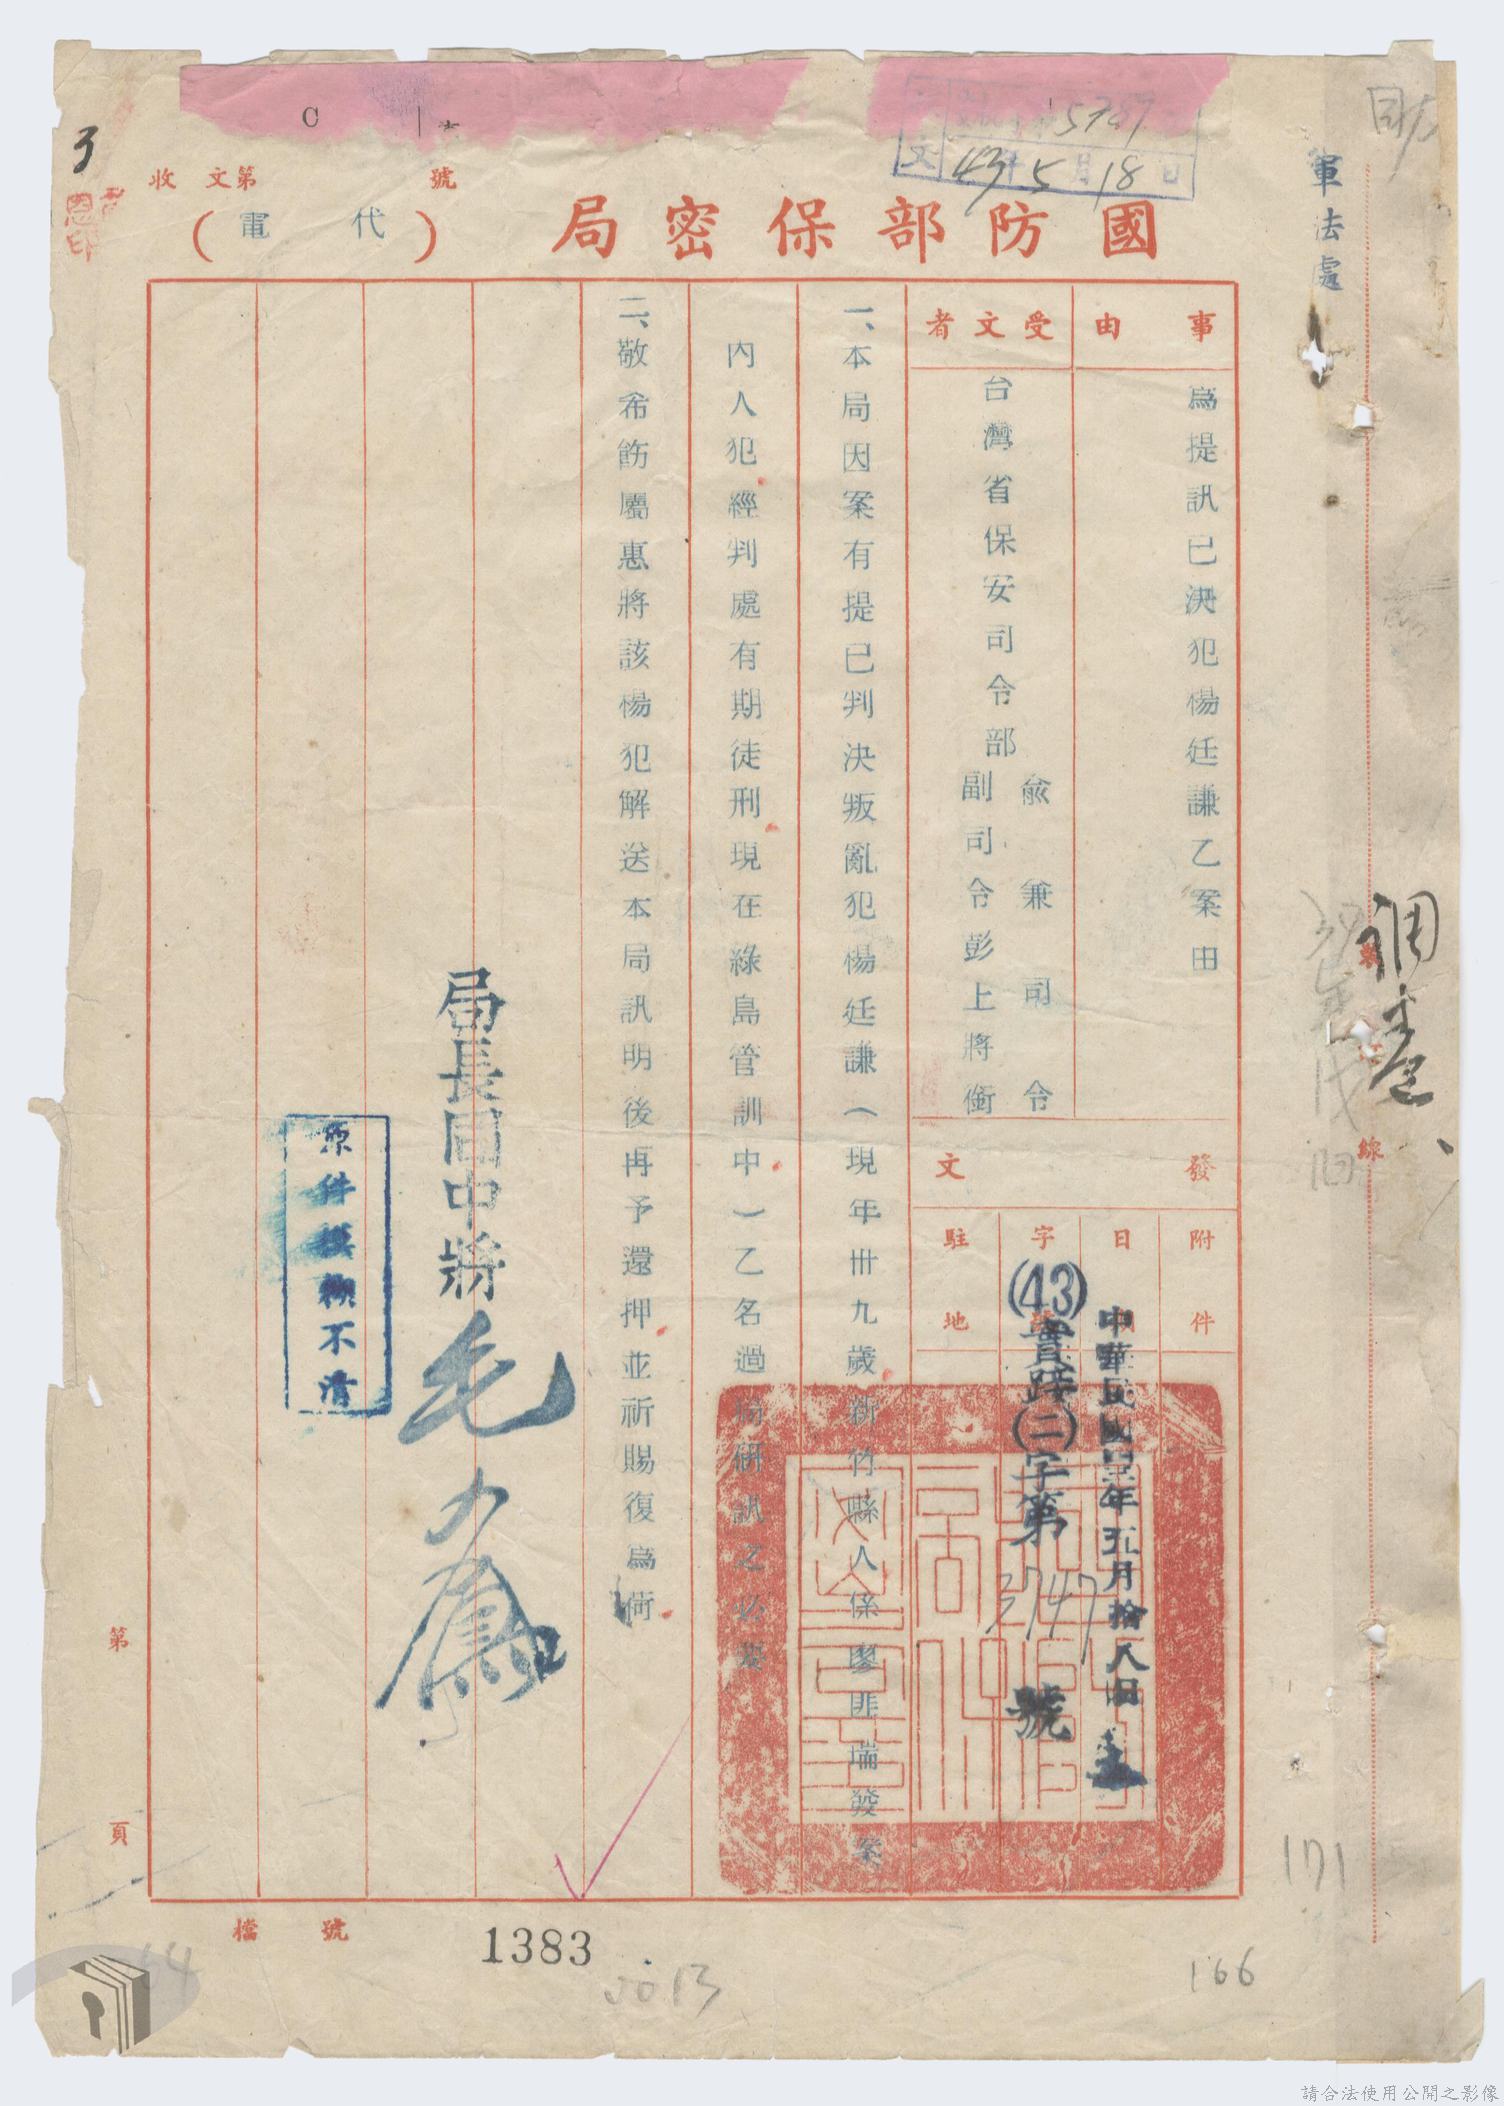 國防部保密局
（代電）
收文第 號
43年5月18日
5787
軍法處
事由
為提訊已決犯楊廷謙乙案由
受文者
台灣省保安司令部
俞兼司令
副司令彭上將銜
發文
附件
日期
中華民國四三年五月拾八日
字號
(43)實踐(二)字第3747號
駐地
一、本局因案有提已判決叛亂犯楊廷謙（現年卅九歲新竹縣人係廖匪瑞發案
內人犯經判處有期徒刑現在綠島管訓中）乙名過局研訊之必要
二、敬希飭屬惠將該楊犯解送本局訊明後再予還押並祈賜復為荷
局長周中將毛人鳳
原件模糊不清
調卷
線
第 頁
檔號
1383
0013
166
171
64
3
C
請合法使用公開之影像